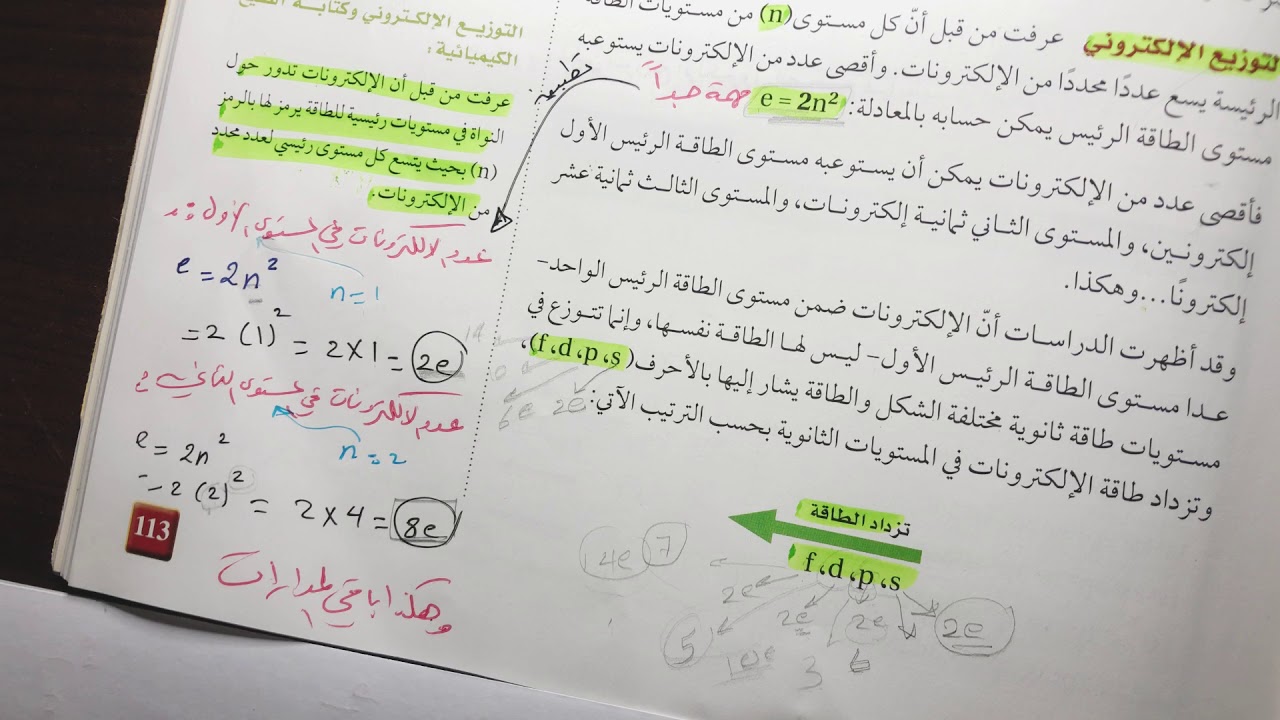 التوزيع الإلكتروني عرفت من قبل أنّ كل مستوى (n) من مستويات الطاقة
الرئيسة يسع عددًا محددًا من الإلكترونات. وأقصى عدد من الإلكترونات يستوعبه
مستوى الطاقة الرئيس يمكن حسابه بالمعادلة: e = 2n²
مهمة جداً
فأقصى عدد من الإلكترونات يمكن أن يستوعبه مستوى الطاقة الرئيس الأول
إلكترونين، والمستوى الثاني ثمانية إلكترونات، والمستوى الثالث ثمانية عشر
إلكترونًا...وهكذا.
وقد أظهرت الدراسات أنّ الإلكترونات ضمن مستوى الطاقة الرئيس الواحد-
عدا مستوى الطاقة الرئيس الأول- ليس لها الطاقة نفسها، وإنما تتوزع في
مستويات طاقة ثانوية مختلفة الشكل والطاقة يشار إليها بالأحرف (f ،d ،p ،s)،
وتزداد طاقة الإلكترونات في المستويات الثانوية بحسب الترتيب الآتي:
6e 2e
تزداد الطاقة
f ،d ،p ،s
14e 7
2e 2e 2e 2e
5 10e 3 6
التوزيع الإلكتروني وكتابة الصيغ
الكيميائية:
عرفت من قبل أن الإلكترونات تدور حول
النواة في مستويات رئيسية للطاقة يرمز لها بالرمز
(n) بحيث يتسع كل مستوى رئيسي لعدد محدد
من الإلكترونات.
عدد الالكترونات في المستوى الأول :
e = 2n²
n = 1
= 2 (1)² = 2 × 1 = 2e
عدد الالكترونات في المستوى الثاني :
e = 2n²
n = 2
= 2 (2)² = 2 × 4 = 8e
وهكذا باقي المدارات
113